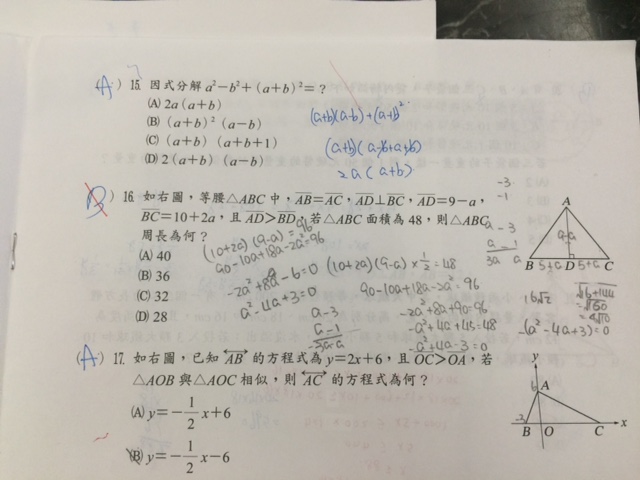 (A) 15. 因式分解 a²-b²+(a+b)²=?
(A) 2a(a+b)
(B) (a+b)²(a-b)
(C) (a+b)(a+b+1)
(D) 2(a+b)(a-b)
(a+b)(a-b)+(a+b)²
(a+b)(a-b+a+b)
2a(a+b)
16. 如右圖，等腰△ABC 中，AB=AC，AD⊥BC，AD=9-a，
BC=10+2a，且 AD>BD，若△ABC 面積為 48，則△ABC
周長為何？
(A) 40
(B) 36
(C) 32
(D) 28
(10+2a)(9-a)=96
90-10a+18a-2a²=96
-2a²+8a-6=0
a²-4a+3=0
a-3
a-1
-3a-a
(10+2a)(9-a)×1/2=48
90-10a+18a-2a²=96
-2a²+8a+90=96
-a²+4a+45=48
-a²+4a-3=0
-(a²-4a+3)=0
-3
-1
a-3
a-1
3a a
A
9-a
B 5+a D 5+a C
16√2
√16+144
√160
4√10
(A) 17. 如右圖，已知 AB 的方程式為 y=2x+6，且 OC>OA，若
△AOB 與△AOC 相似，則 AC 的方程式為何？
(A) y=-1/2x+6
(B) y=-1/2x-6
y
6 A
B O C x